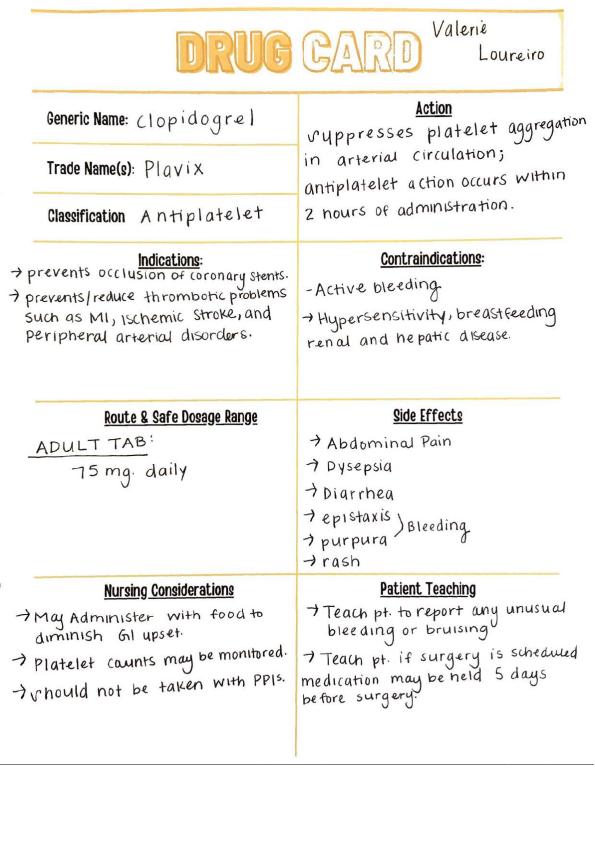 DRUG CARD
Valerie
Loureiro
Generic Name: Clopidogrel
Trade Name(s): Plavix
Classification Antiplatelet
Action
suppresses platelet aggregation
in arterial circulation;
antiplatelet action occurs within
2 hours of administration.
Indications:
→ prevents occlusion of coronary stents.
→ prevents/reduce thrombotic problems
such as MI, ischemic stroke, and
peripheral arterial disorders.
Contraindications:
- Active bleeding
→ Hypersensitivity, breastfeeding
renal and hepatic disease.
Route & Safe Dosage Range
ADULT TAB:
75 mg. daily
Side Effects
→ Abdominal Pain
→ Dysepsia
→ Diarrhea
→ epistaxis
→ purpura
Bleeding
→ rash
Nursing Considerations
→ May Administer with food to
diminish GI upset.
→ Platelet counts may be monitored.
→ should not be taken with PPIs.
Patient Teaching
→ Teach pt. to report any unusual
bleeding or bruising
→ Teach pt. if surgery is scheduled
medication may be held 5 days
before surgery.